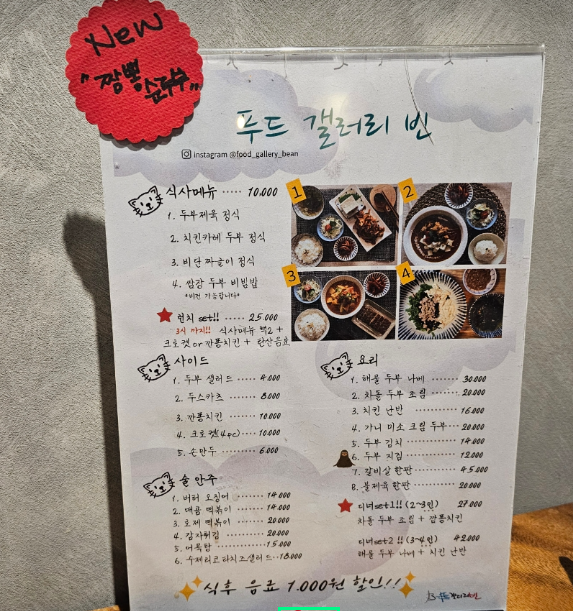 New
"짬뽕
순두부"
푸드 갤러리 빈
instagram @food_gallery_bean
식사메뉴 ····· 10.000
1. 두부제육 정식
2. 치킨카레 두부 정식
3. 비단 짜글이 정식
4. 쌈장 두부 비빔밥
*비건 가능합니다*
런치 set!! ····· 25.000
3시 까지!! 식사메뉴 택2 +
크로켓 or 깐풍치킨 + 탄산음료
1
2
3
4
사이드
1. 두부 샐러드 ···· 4.000
2. 두스카츠 ······ 8.000
3. 깐풍치킨 ······ 10.000
4. 크로켓(4pc) ···· 10.000
5. 손만두 ······ 6.000
술 안주
1. 버터 오징어 ······ 14.000
2. 매콤 떡볶이 ······ 14.000
3. 로제 떡볶이 ······ 20.000
4. 감자튀김 ······ 20.000
5. 어묵탕 ······ 15.000
6. 수제리코타치즈샐러드··18.000
요리
1. 해물 두부 나베 ···· 30.000
2. 차돌 두부 조림 ···· 20.000
3. 치킨 난반 ······ 16.000
4. 가니 미소 크림 두부··· 20.000
5. 두부 김치 ······ 14.000
6. 두부 지짐 ······ 12.000
7. 갈비살 한판 ······ 45.000
8. 불제육 한판 ······ 20.000
디너set1!! (2~3인) 27.000
차돌 두부 조림 + 깐풍치킨
디너set2!! (3~4인) 42.000
해물 두부 나베 + 치킨 난반
식후 음료 1.000원 할인!!
푸드갤러리빈